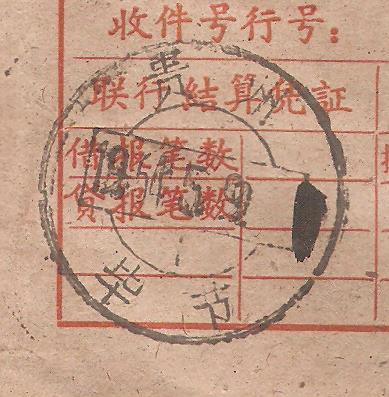 收件号行号：
联行结算凭証
借报笔数
贷报笔数
贵州
毕节